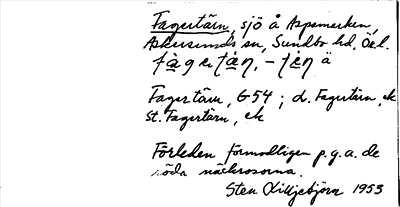 Fagertärn, sjö å Aspamarken,
Askersunds sn, Sundbo hd, Örl.
fàgertä́n, – tä́n ä
Fagertärn, G54 ; d. Fagertärn, ek
St. Fagertärn, ek
Förleden förmodligen p.g.a. de
röda näckrosorna.
Sten Lilljebjörn 1953